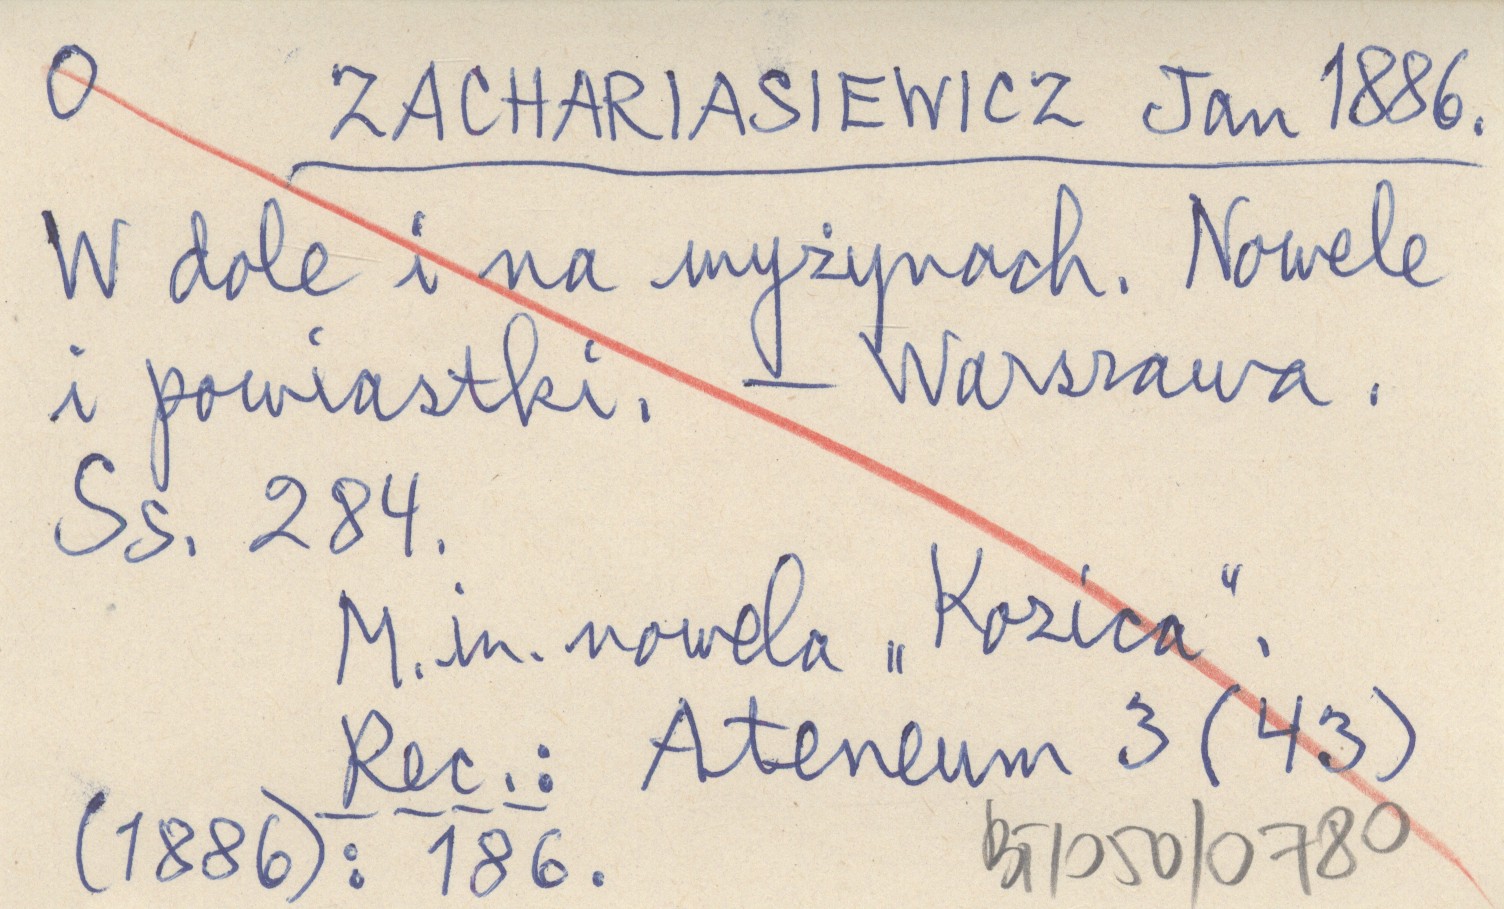 O ZACHARIASIEWICZ Jan 1886.
W dole i na wyżynach. Nowele
i powiastki. — Warszawa.
Ss. 284.
M. in. nowela „Kozica".
Rec.: Ateneum 3 (43)
(1886): 186.
BJ/050/0780